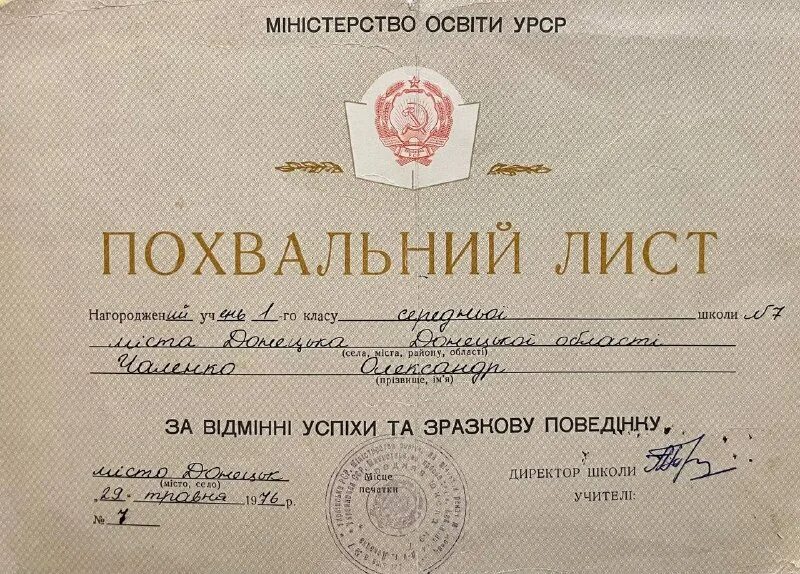 МІНІСТЕРСТВО ОСВІТИ УРСР
ПОХВАЛЬНИЙ ЛИСТ
Нагороджений учень 1-го класу середньої школи №7
міста Донецька Донецької області
(села, міста, району, області)
Чаленко Олександр
(прізвище, ім'я)
ЗА ВІДМІННІ УСПІХИ ТА ЗРАЗКОВУ ПОВЕДІНКУ
місто Донецьк
(місто, село)
„29" травня 1976 р.
№ 7
Місце
печатки
ДИРЕКТОР ШКОЛИ
УЧИТЕЛІ: